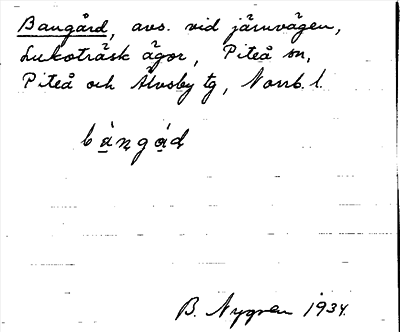 Bangård, avs. vid järnvägen,
Lukoträsk ägor, Piteå sn,
Piteå och Älvsby tg, Norrb. l.
bàŋgád
B. Nygren 1934.